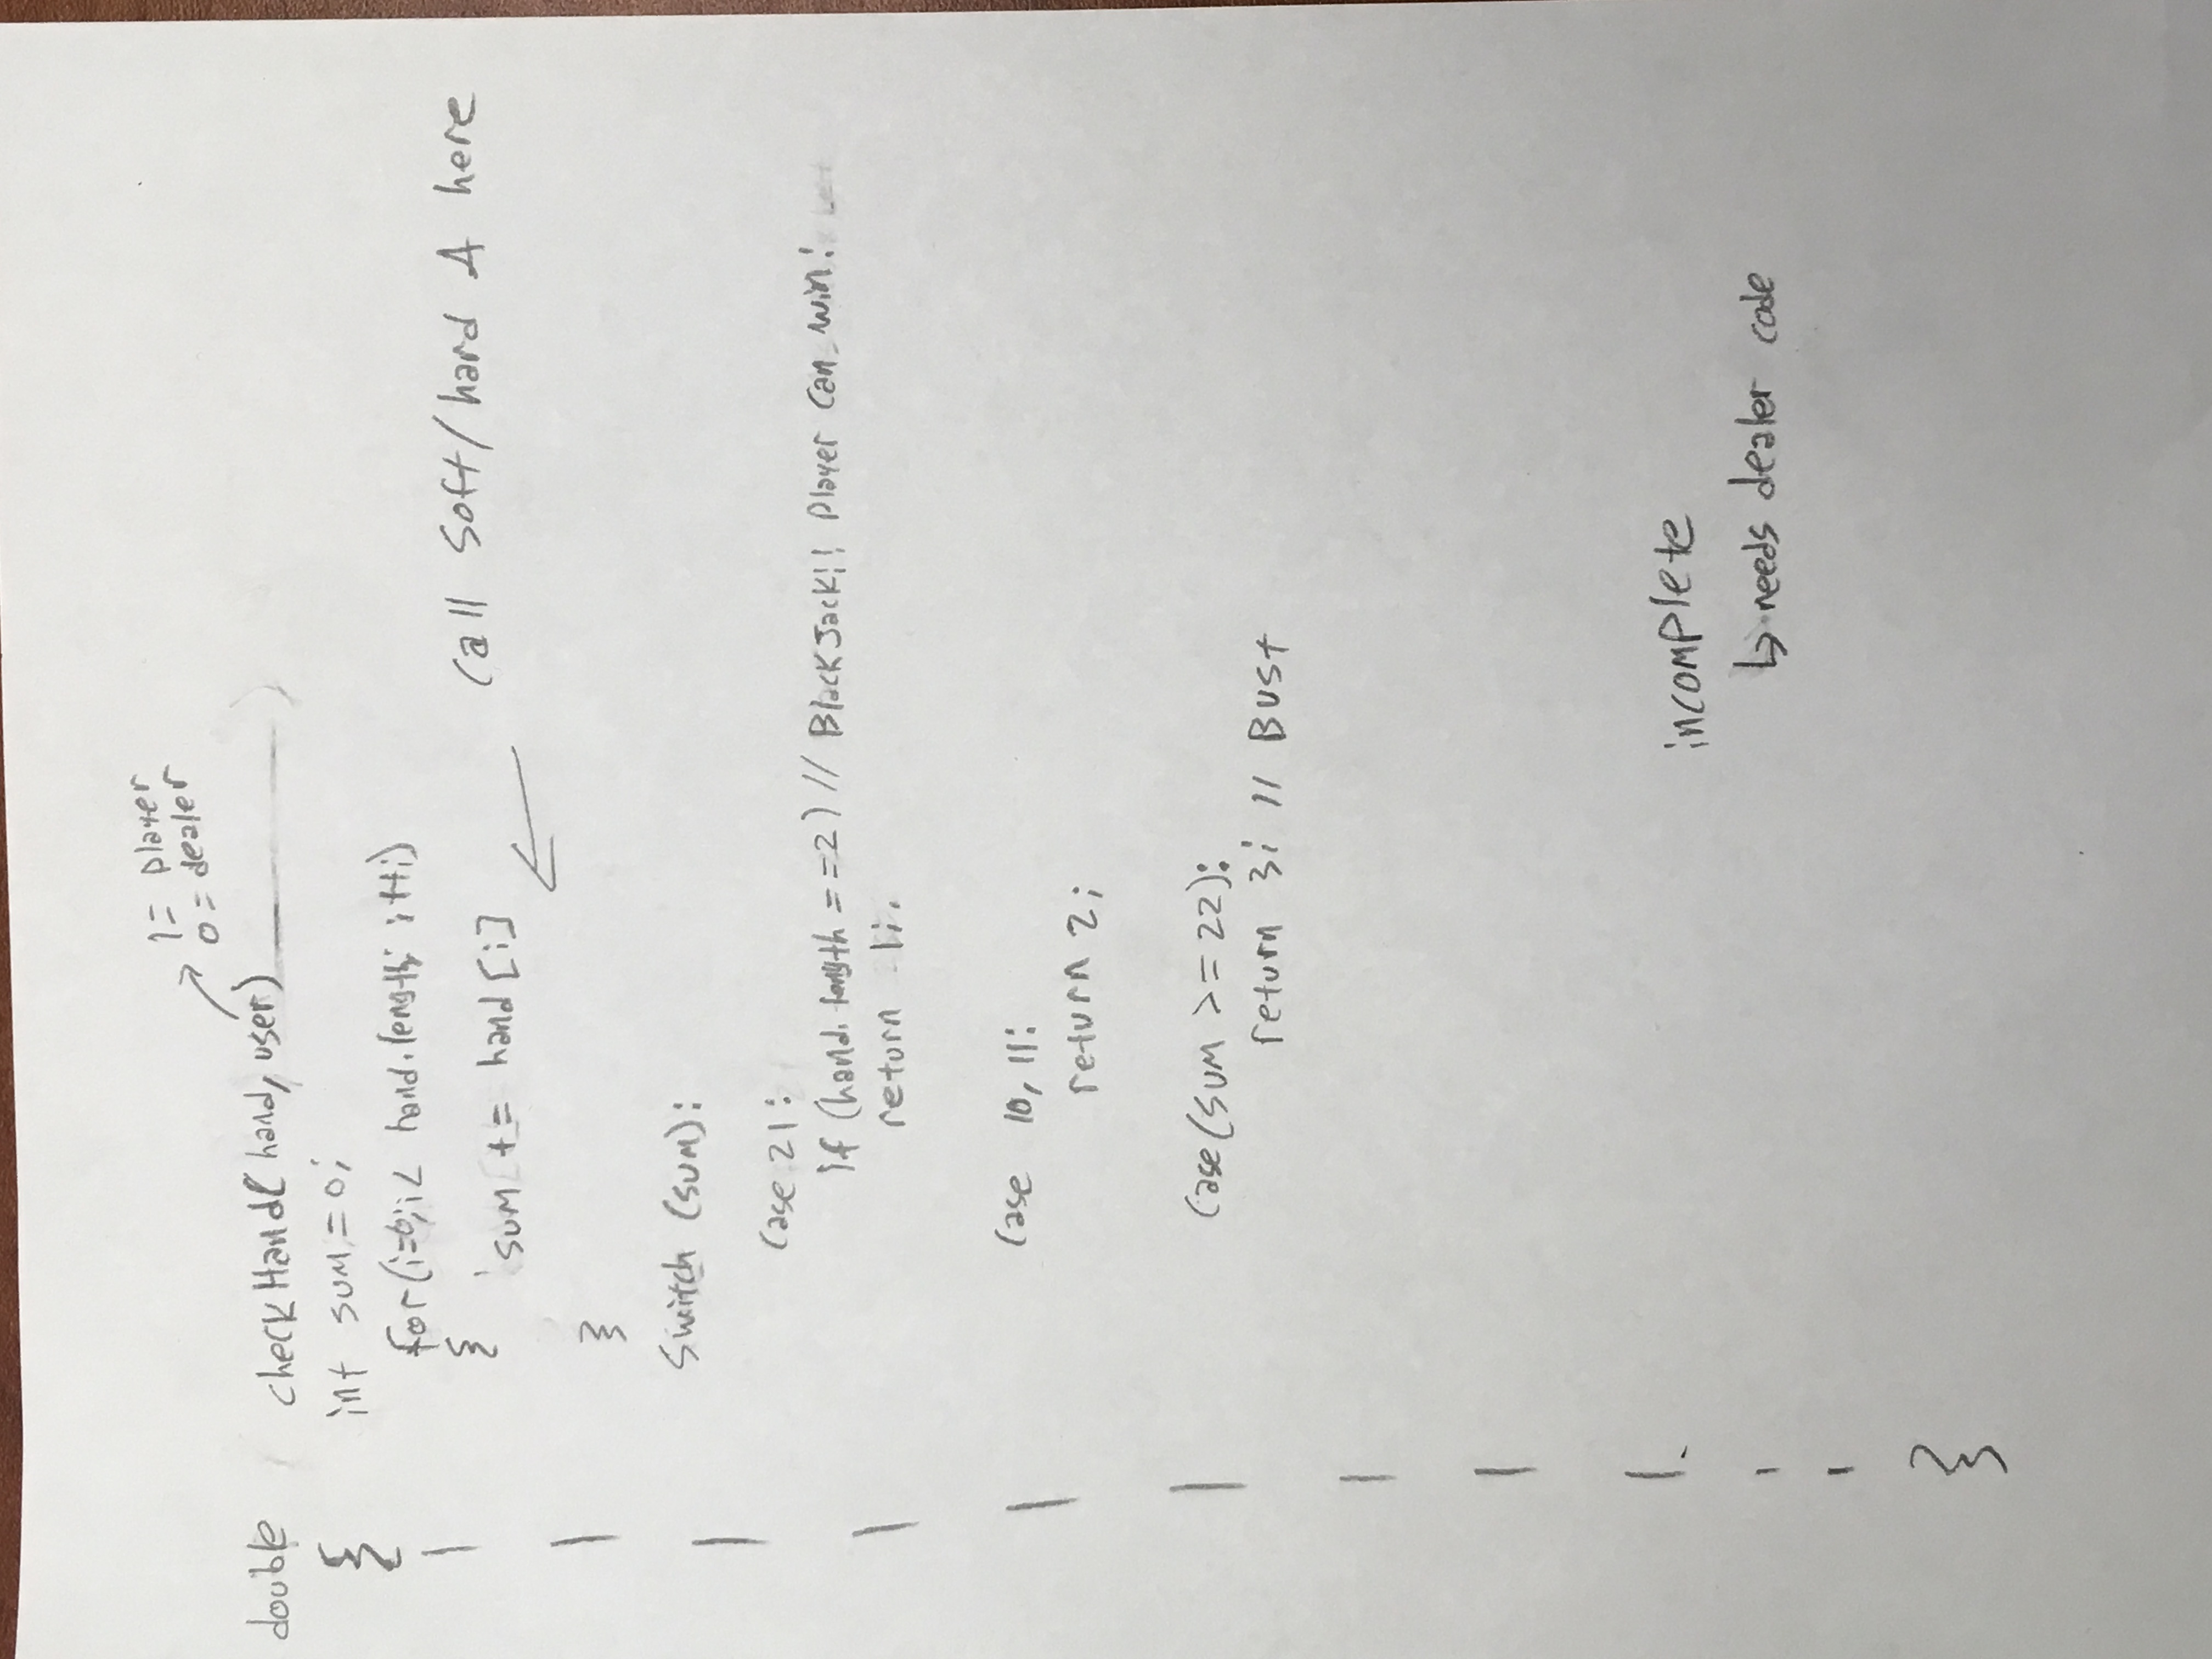 1 = player
0 = dealer
double checkHand(hand, user)
{ int sum = 0;
for(i=0; i< hand.length; i++)
{
sum += hand[i]
call soft/hard A here
}
Switch (sum):
Case 21:
if (hand.length == 2) // BlackJack!! Player can win!
return 1;
Case 10, 11:
return 2;
Case (sum >= 22):
return 3; // Bust
incomplete
↳ needs dealer code
}